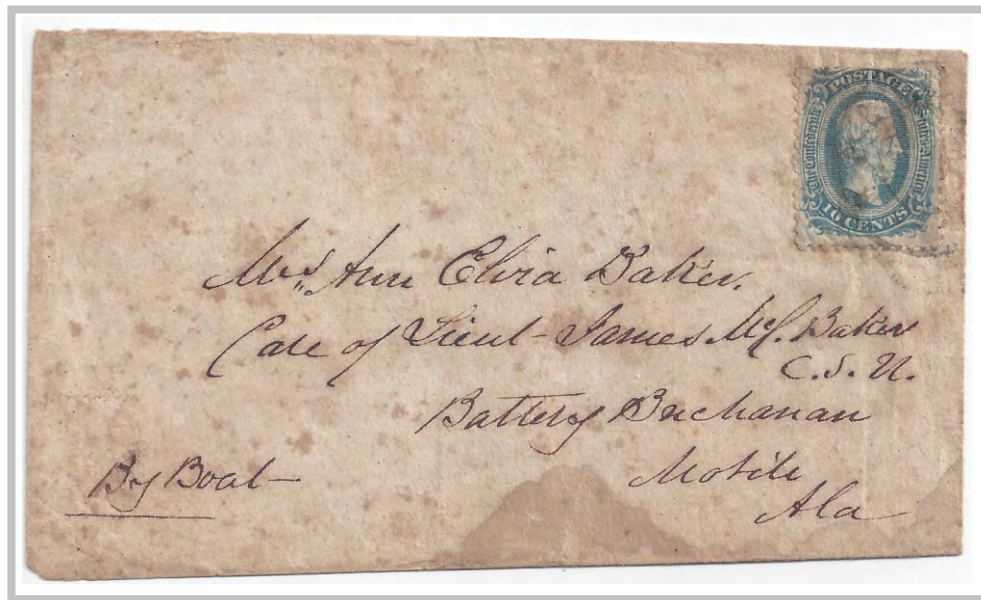 POSTAGE
The Confederate States of America
10 CENTS
Mrs Ann Elvia Baker.
Care of Lieut- James McC. Baker
C.S.N.
Battery Buchanan
Mobile
Ala
By Boat-